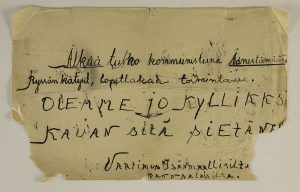 Älkää tulko kommunistina
Ryssän kätyri, lopettakaa toimintanne.
OLEMME JO KYLLIKKS
KAUAN SITÄ SIETÄNE
Vaatimus Isänmaallisilta
kansalaisilta.